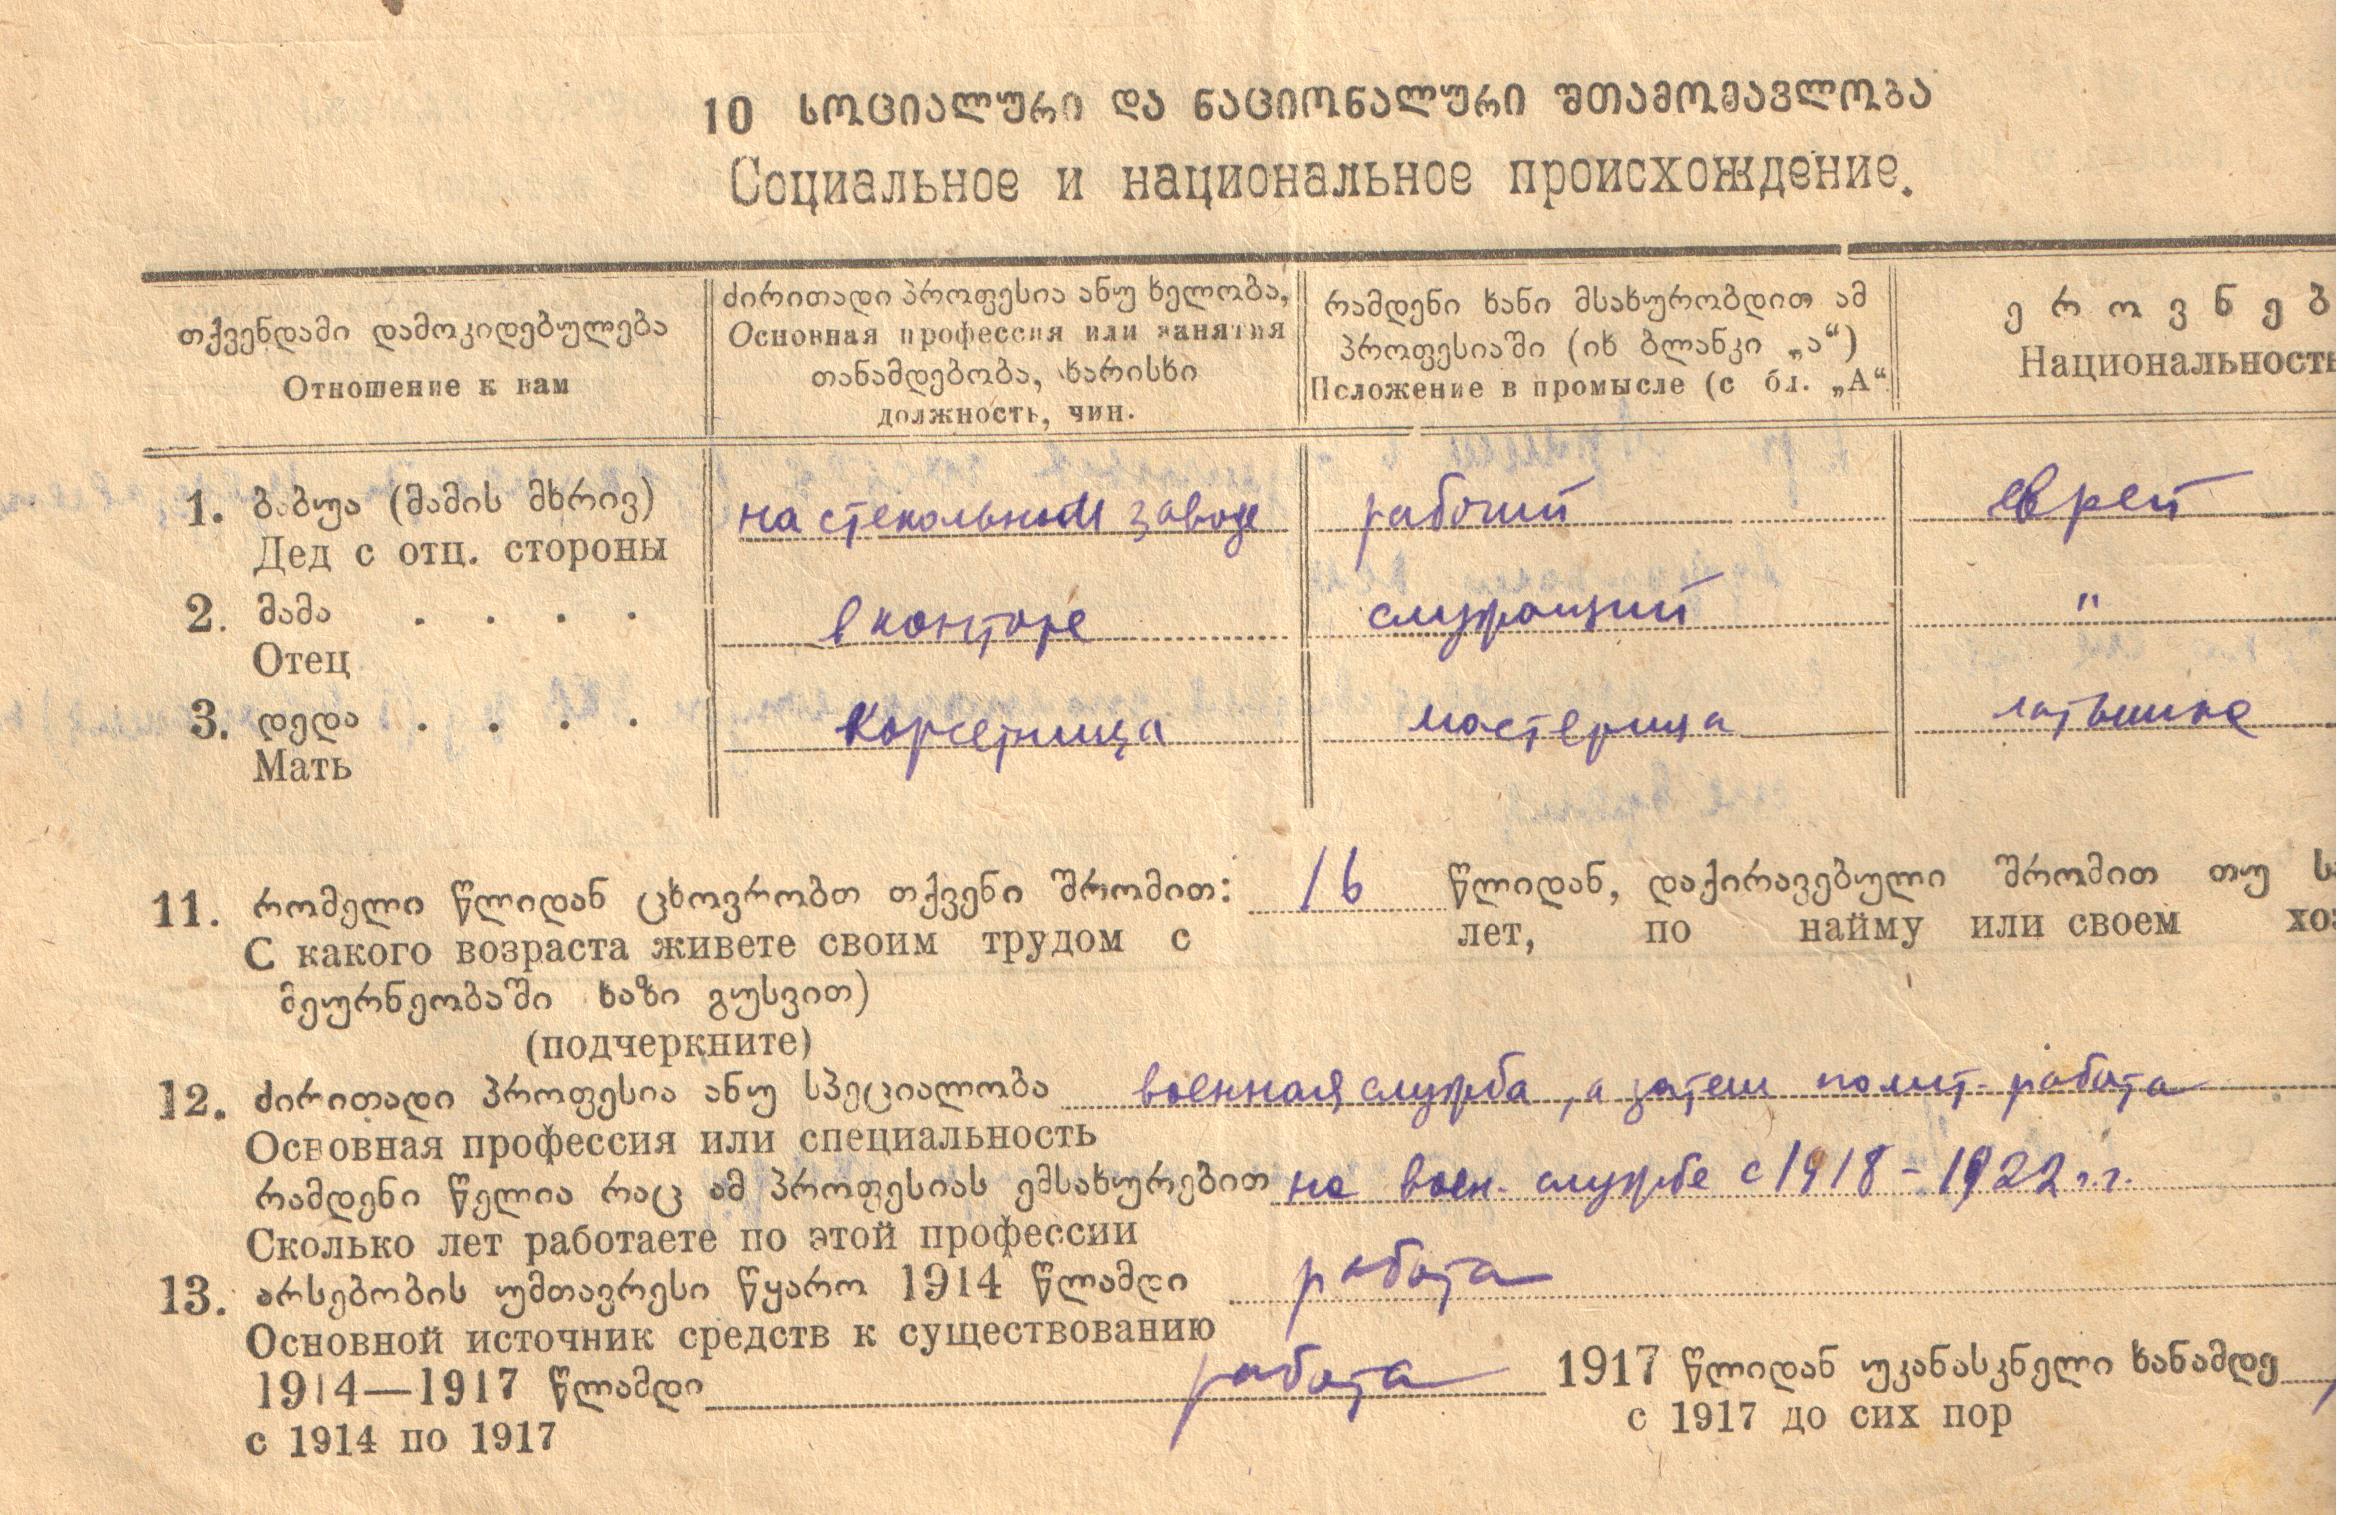 10 სოციალური და ნაციონალური შთამომავლობა
Социальное и национальное происхождение.
თქვენდამი დამოკიდებულება
Отношение к вам
ძირითადი პროფესია ანუ ხელობა,
Основная профессия или занятия
თანამდებობა, ხარისხი
должность, чин.
რამდენი ხანი მსახურობდით ამ
პროფესიაში (იხ ბლანკი „ა“)
Положение в промысле (с бл. „А“
ეროვნებ
Национальность
1. ბაბუა (მამის მხრივ) на стекольном заводе рабочий еврей
Дед с отц. стороны
2. მამა . . . . в конторе служащий "
Отец
3. დედა . . . . корсетница мастерица латышка
Мать
11. რომელი წლიდან ცხოვრობთ თქვენი შრომით: 16 წლიდან, დაქირავებული შრომით თუ ს
С какого возраста живете своим трудом с лет, по найму или своем хоз
მეურნეობაში ხაზი გუსვით)
(подчеркните)
12. ძირითადი პროფესია ანუ სპეციალობა военная служба, а затем полит. работа
Основная профессия или специальность
რამდენი წელია რაც ამ პროფესიას ემსახურებით на воен. службе с 1918 – 1922 г.г.
Сколько лет работаете по этой профессии
13. არსებობის უმთავრესი წყარო 1914 წლამდი работа
Основной источник средств к существованию
1914—1917 წლამდი работа 1917 წლიდან უკანასკნელი ხანამდე
с 1914 по 1917 с 1917 до сих пор